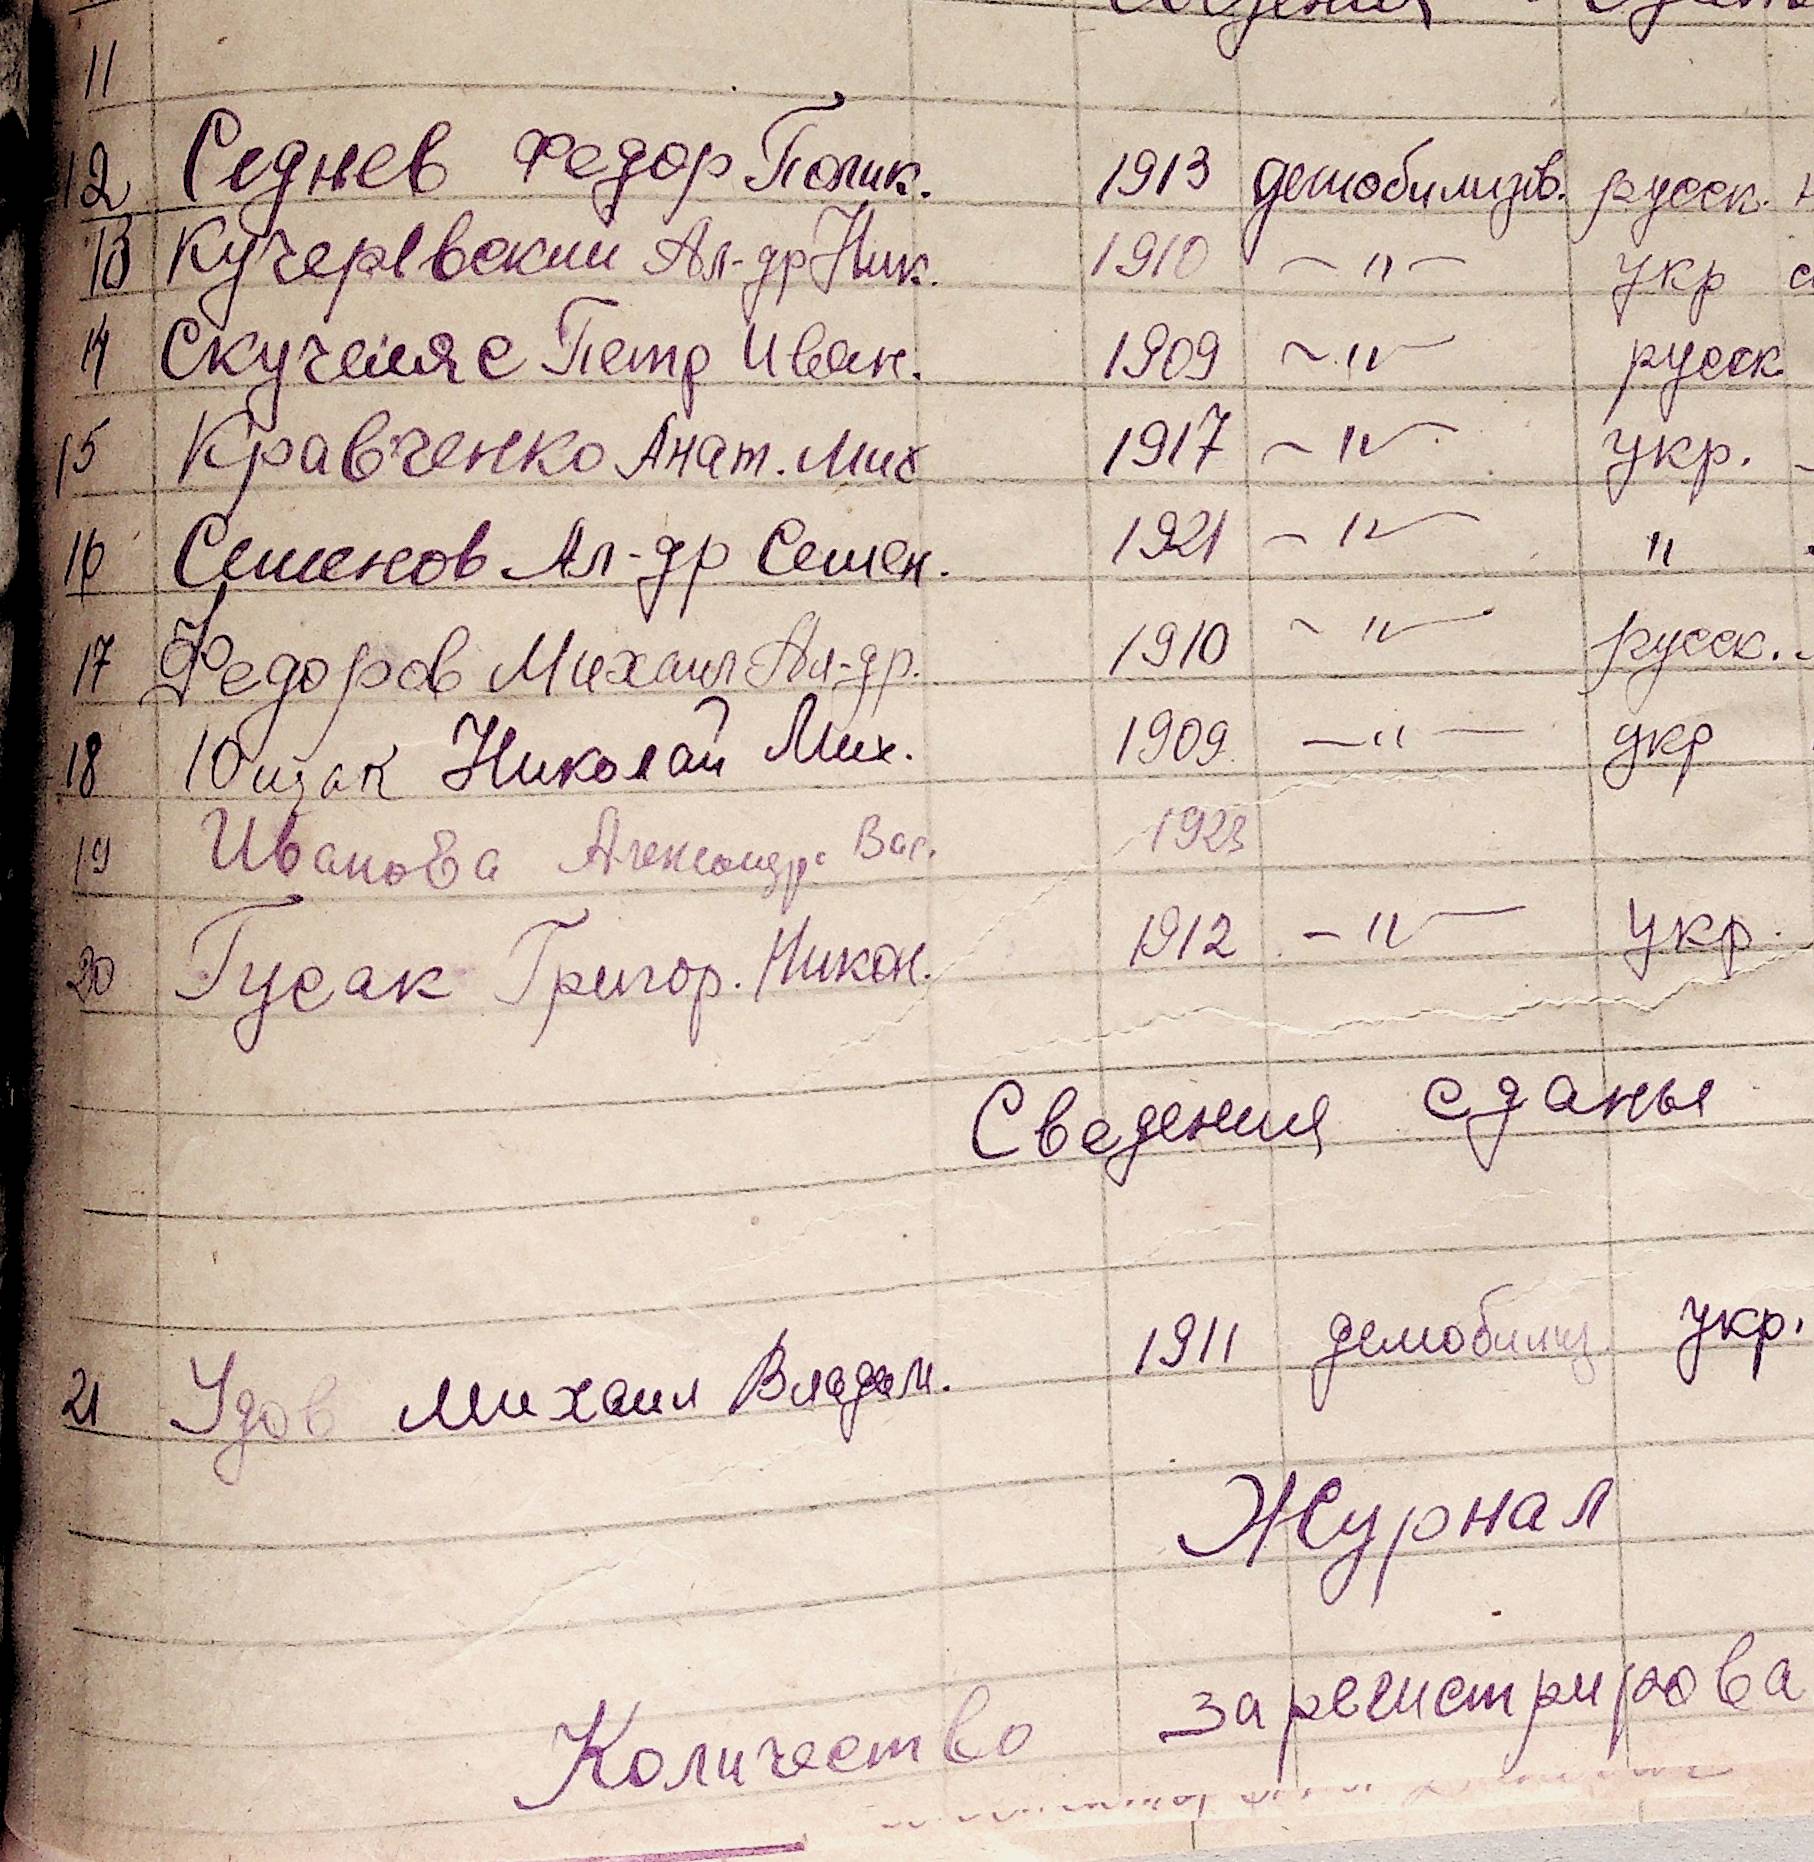 Сведения
11
12 Седнев Федор Полик. 1913 демобилизов. русск.
13 Кучеревский Ал-др Ник. 1910 – " – укр
14 Петр Иван. 1909 – " – русск
15 Кравченко Анат. Мих 1917 – " – укр.
16 Семенов Ал-др Семен. 1921 – " – "
17 Федоров Михаил Ал-др. 1910 – " – русск.
18 Юшак Николай Мих. 1909 – " – укр
19 Иванова Александра Вас. 1923
20 Гусак Григор. Никон. 1912 – " – укр.
Сведения сданы
21 Удов Михаил Владим. 1911 демобилиз. укр.
Журнал
Количество зарегистрирова